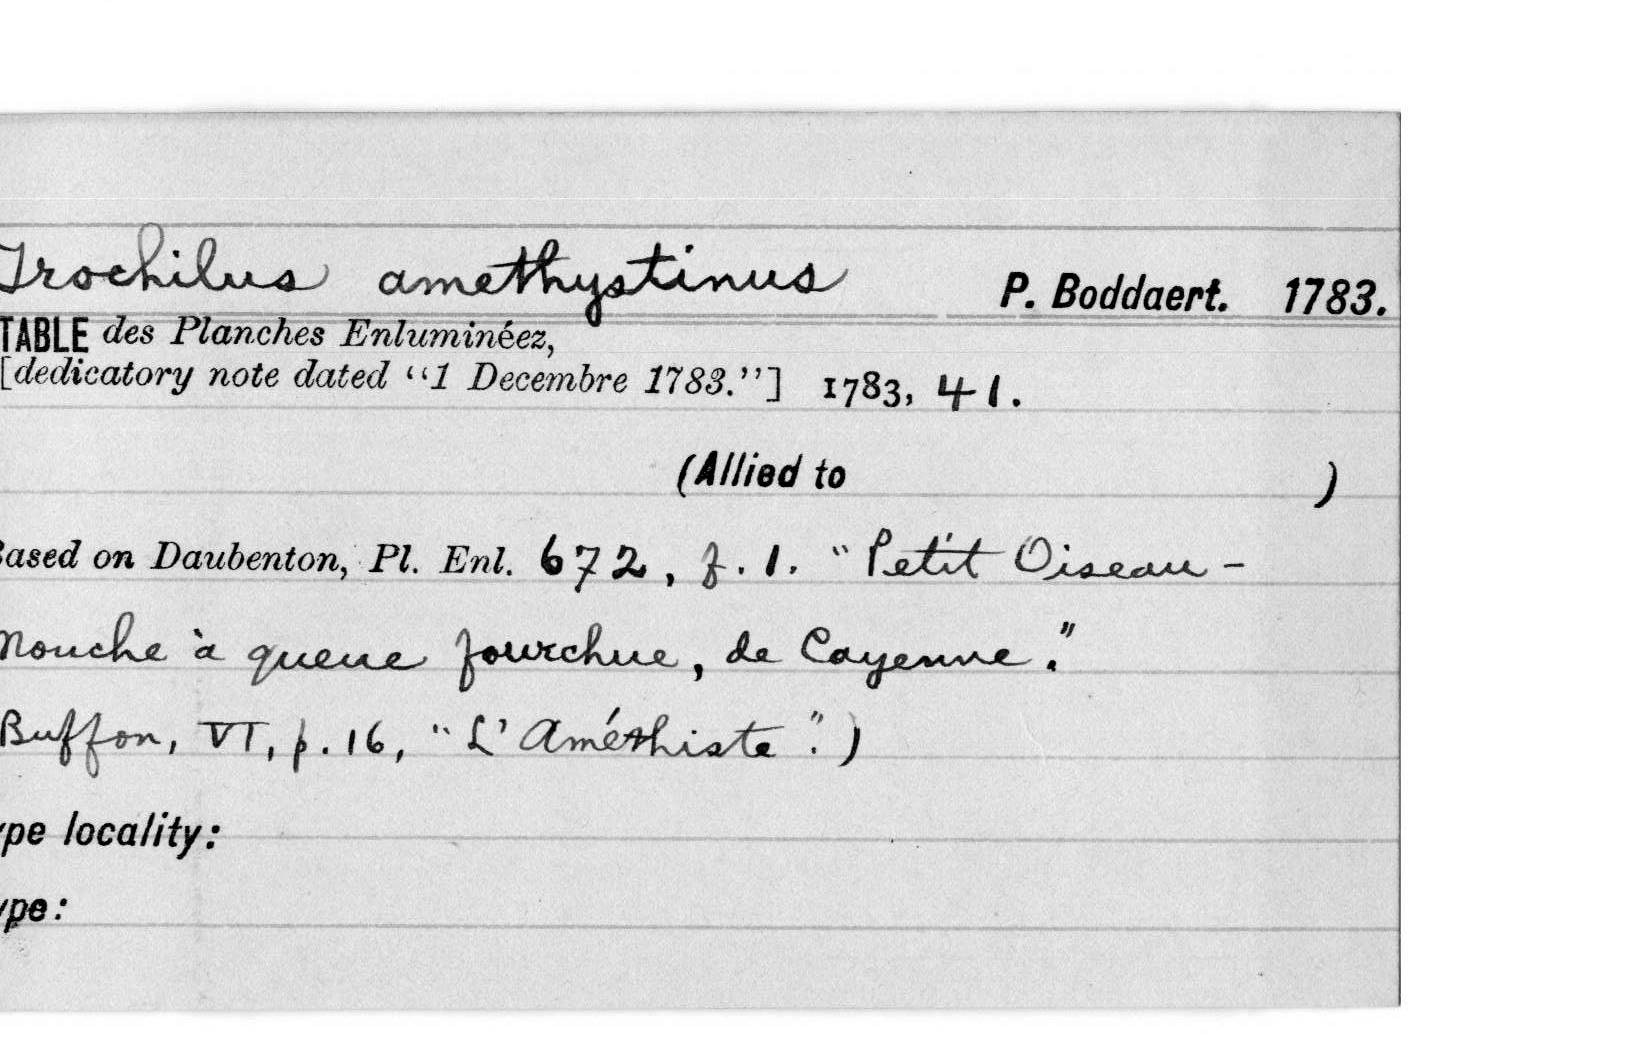 Trochilus amethystinus P. Boddaert. 1783.
TABLE des Planches Enluminéez,
[dedicatory note dated “1 Decembre 1783.”] 1783, 41.
(Allied to )
Based on Daubenton, Pl. Enl. 672, f. 1. "Petit Oiseau-
Mouche à queue fourchue, de Cayenne."
Buffon, VI, p. 16, "L'Améthiste".)
ype locality:
ype: